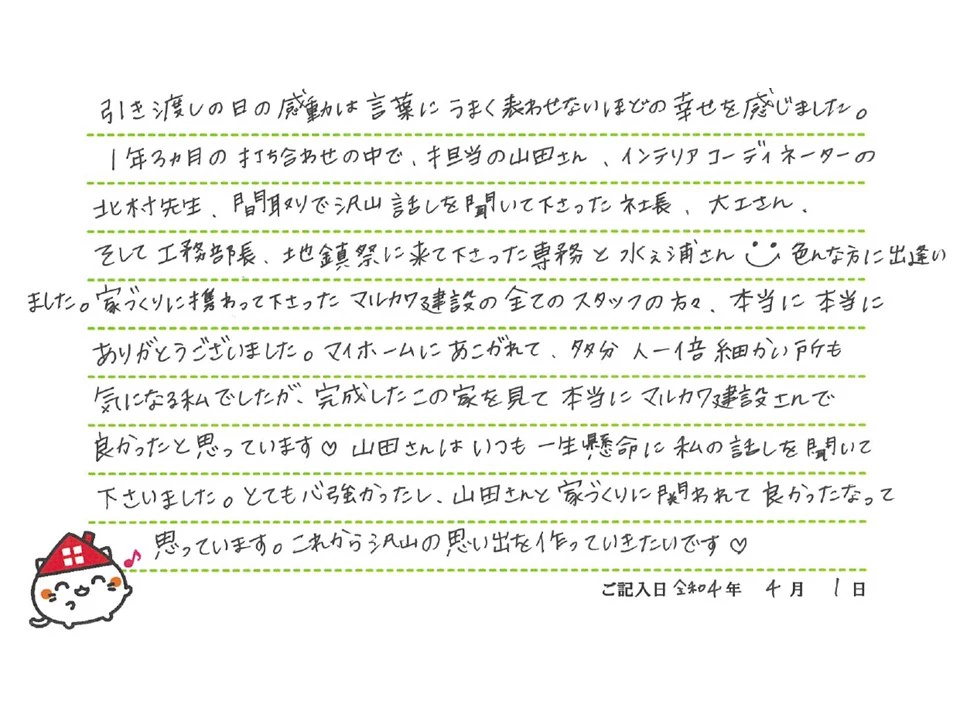 引き渡しの日の感動は言葉にうまく表わせないほどの幸せを感じました。
1年3ヵ月の打ち合わせの中で、担当の山田さん、インテリアコーディネーターの
北村先生、間取りで沢山話しを聞いて下さった社長、大工さん、
そして工務部長、地鎮祭に来て下さった専務と水え浦さん 色んな方に出逢い
ました。家づくりに携わって下さったマルカワ建設の全てのスタッフの方々、本当に本当に
ありがとうございました。マイホームにあこがれて、多分人一倍細かい所も
気になる私でしたが、完成したこの家を見て本当にマルカワ建設さんで
良かったと思っています♡山田さんはいつも一生懸命に私の話しを聞いて
下さいました。とても心強かったし、山田さんと家づくりに関われて良かったなって
思っています。これから沢山の思い出を作っていきたいです♡
ご記入日 令和4年 4月 1日